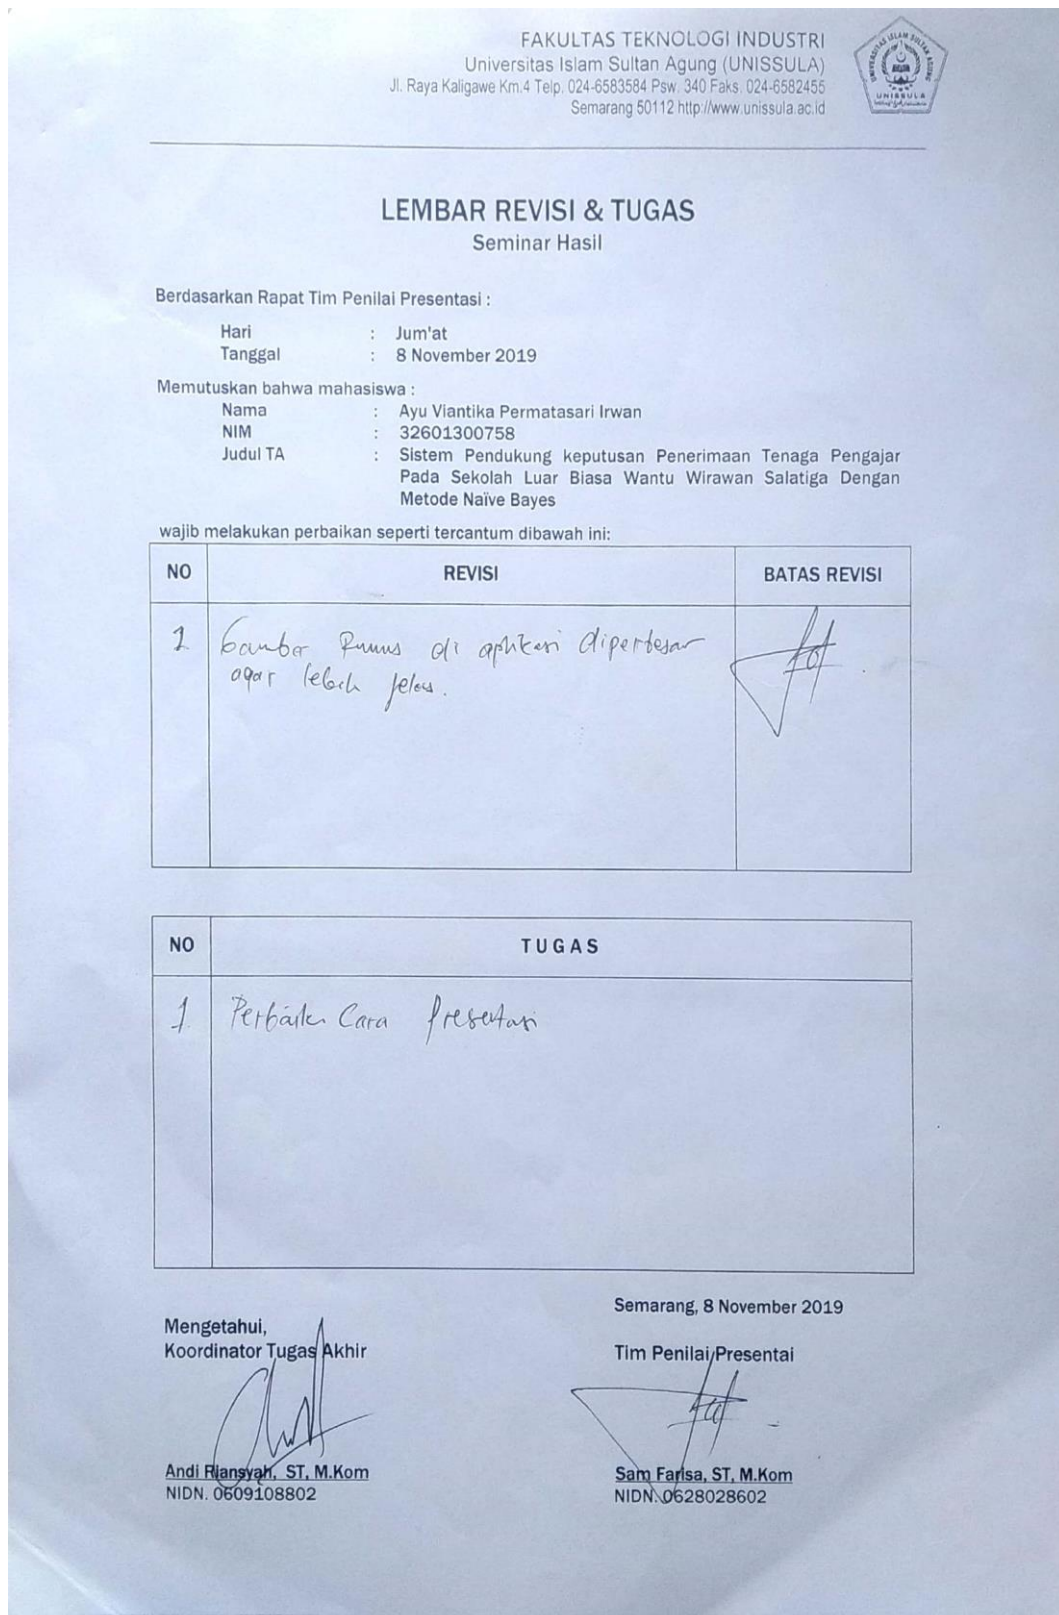 FAKULTAS TEKNOLOGI INDUSTRI
Universitas Islam Sultan Agung (UNISSULA)
Jl. Raya Kaligawe Km.4 Telp. 024-6583584 Psw. 340 Faks. 024-6582455
Semarang 50112 http://www.unissula.ac.id
UNIVERSITAS ISLAM SULTAN AGUNG
UNISSULA
LEMBAR REVISI & TUGAS
Seminar Hasil
Berdasarkan Rapat Tim Penilai Presentasi :
Hari : Jum'at
Tanggal : 8 November 2019
Memutuskan bahwa mahasiswa :
Nama : Ayu Viantika Permatasari Irwan
NIM : 32601300758
Judul TA : Sistem Pendukung keputusan Penerimaan Tenaga Pengajar
Pada Sekolah Luar Biasa Wantu Wirawan Salatiga Dengan
Metode Naïve Bayes
wajib melakukan perbaikan seperti tercantum dibawah ini:
NO REVISI BATAS REVISI
1 Gambar Rumus di aplikasi diperbesar
agar lebih jelas.
NO TUGAS
1 Perbaiki Cara Presentasi
Semarang, 8 November 2019
Mengetahui,
Koordinator Tugas Akhir
Tim Penilai Presentai
Andi Riansyah, ST, M.Kom
NIDN. 0609108802
Sam Farisa, ST, M.Kom
NIDN. 0628028602